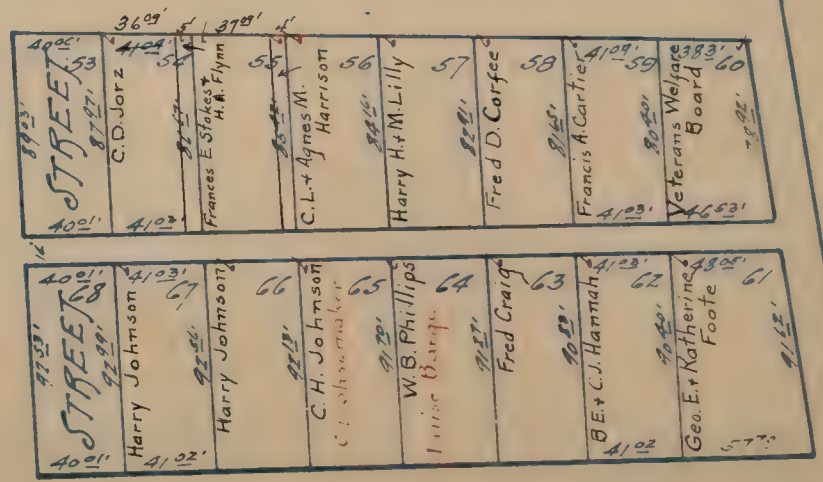 36 09' 5' 37 09' 4'
STREET 53
89 03'
87 97'
40 01'
C. D. Jorz
41 04'
54
41 03'
Frances E. Stokes &
H. A. Flynn
55
C. L. & Agnes M.
Harrison
56
84 16'
Harry H. & M. Lilly
57
82 91'
Fred D. Corfee
58
81 65'
Francis A. Cartier
41 09'
59
80 40'
41 03'
Veterans Welfare
Board
38 3'
60
78 92'
46 53'
16'
STREET 68
92 53'
92 99'
40 01'
40 01'
Harry Johnson
41 03'
67
92 56'
41 02'
Harry Johnson
66
92 13'
C. H. Johnson
65
91 70'
W. B. Phillips
64
91 27'
Fred Craig
63
B E. & C. J. Hannah
41 03'
62
90 40'
41 02
Geo. E. & Katherine
Foote
43 05'
61
91 62'